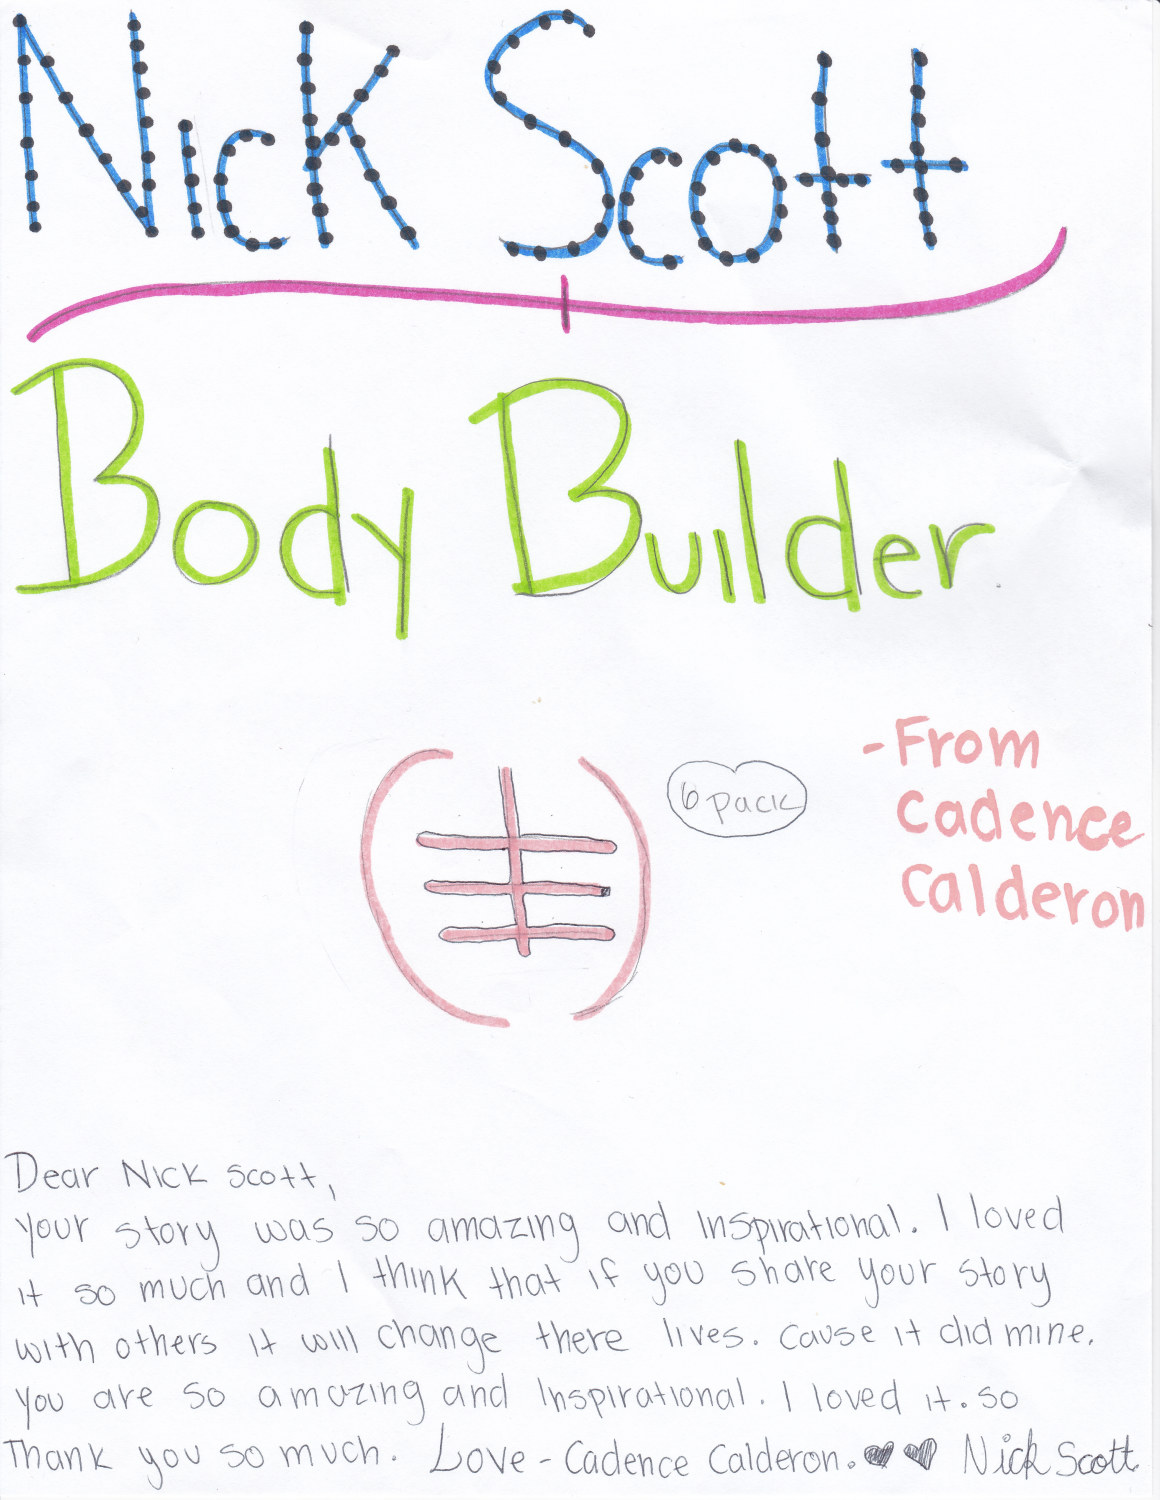 Nick Scott
Body Builder
6 pack
- From
Cadence
Calderon
Dear Nick Scott,
Your story was so amazing and Inspirational. I loved
it so much and I think that if you share your story
with others it will change there lives. Cause it did mine.
You are so amazing and Inspirational. I loved it. so
Thank you so much. Love - Cadence Calderon. Nick Scott